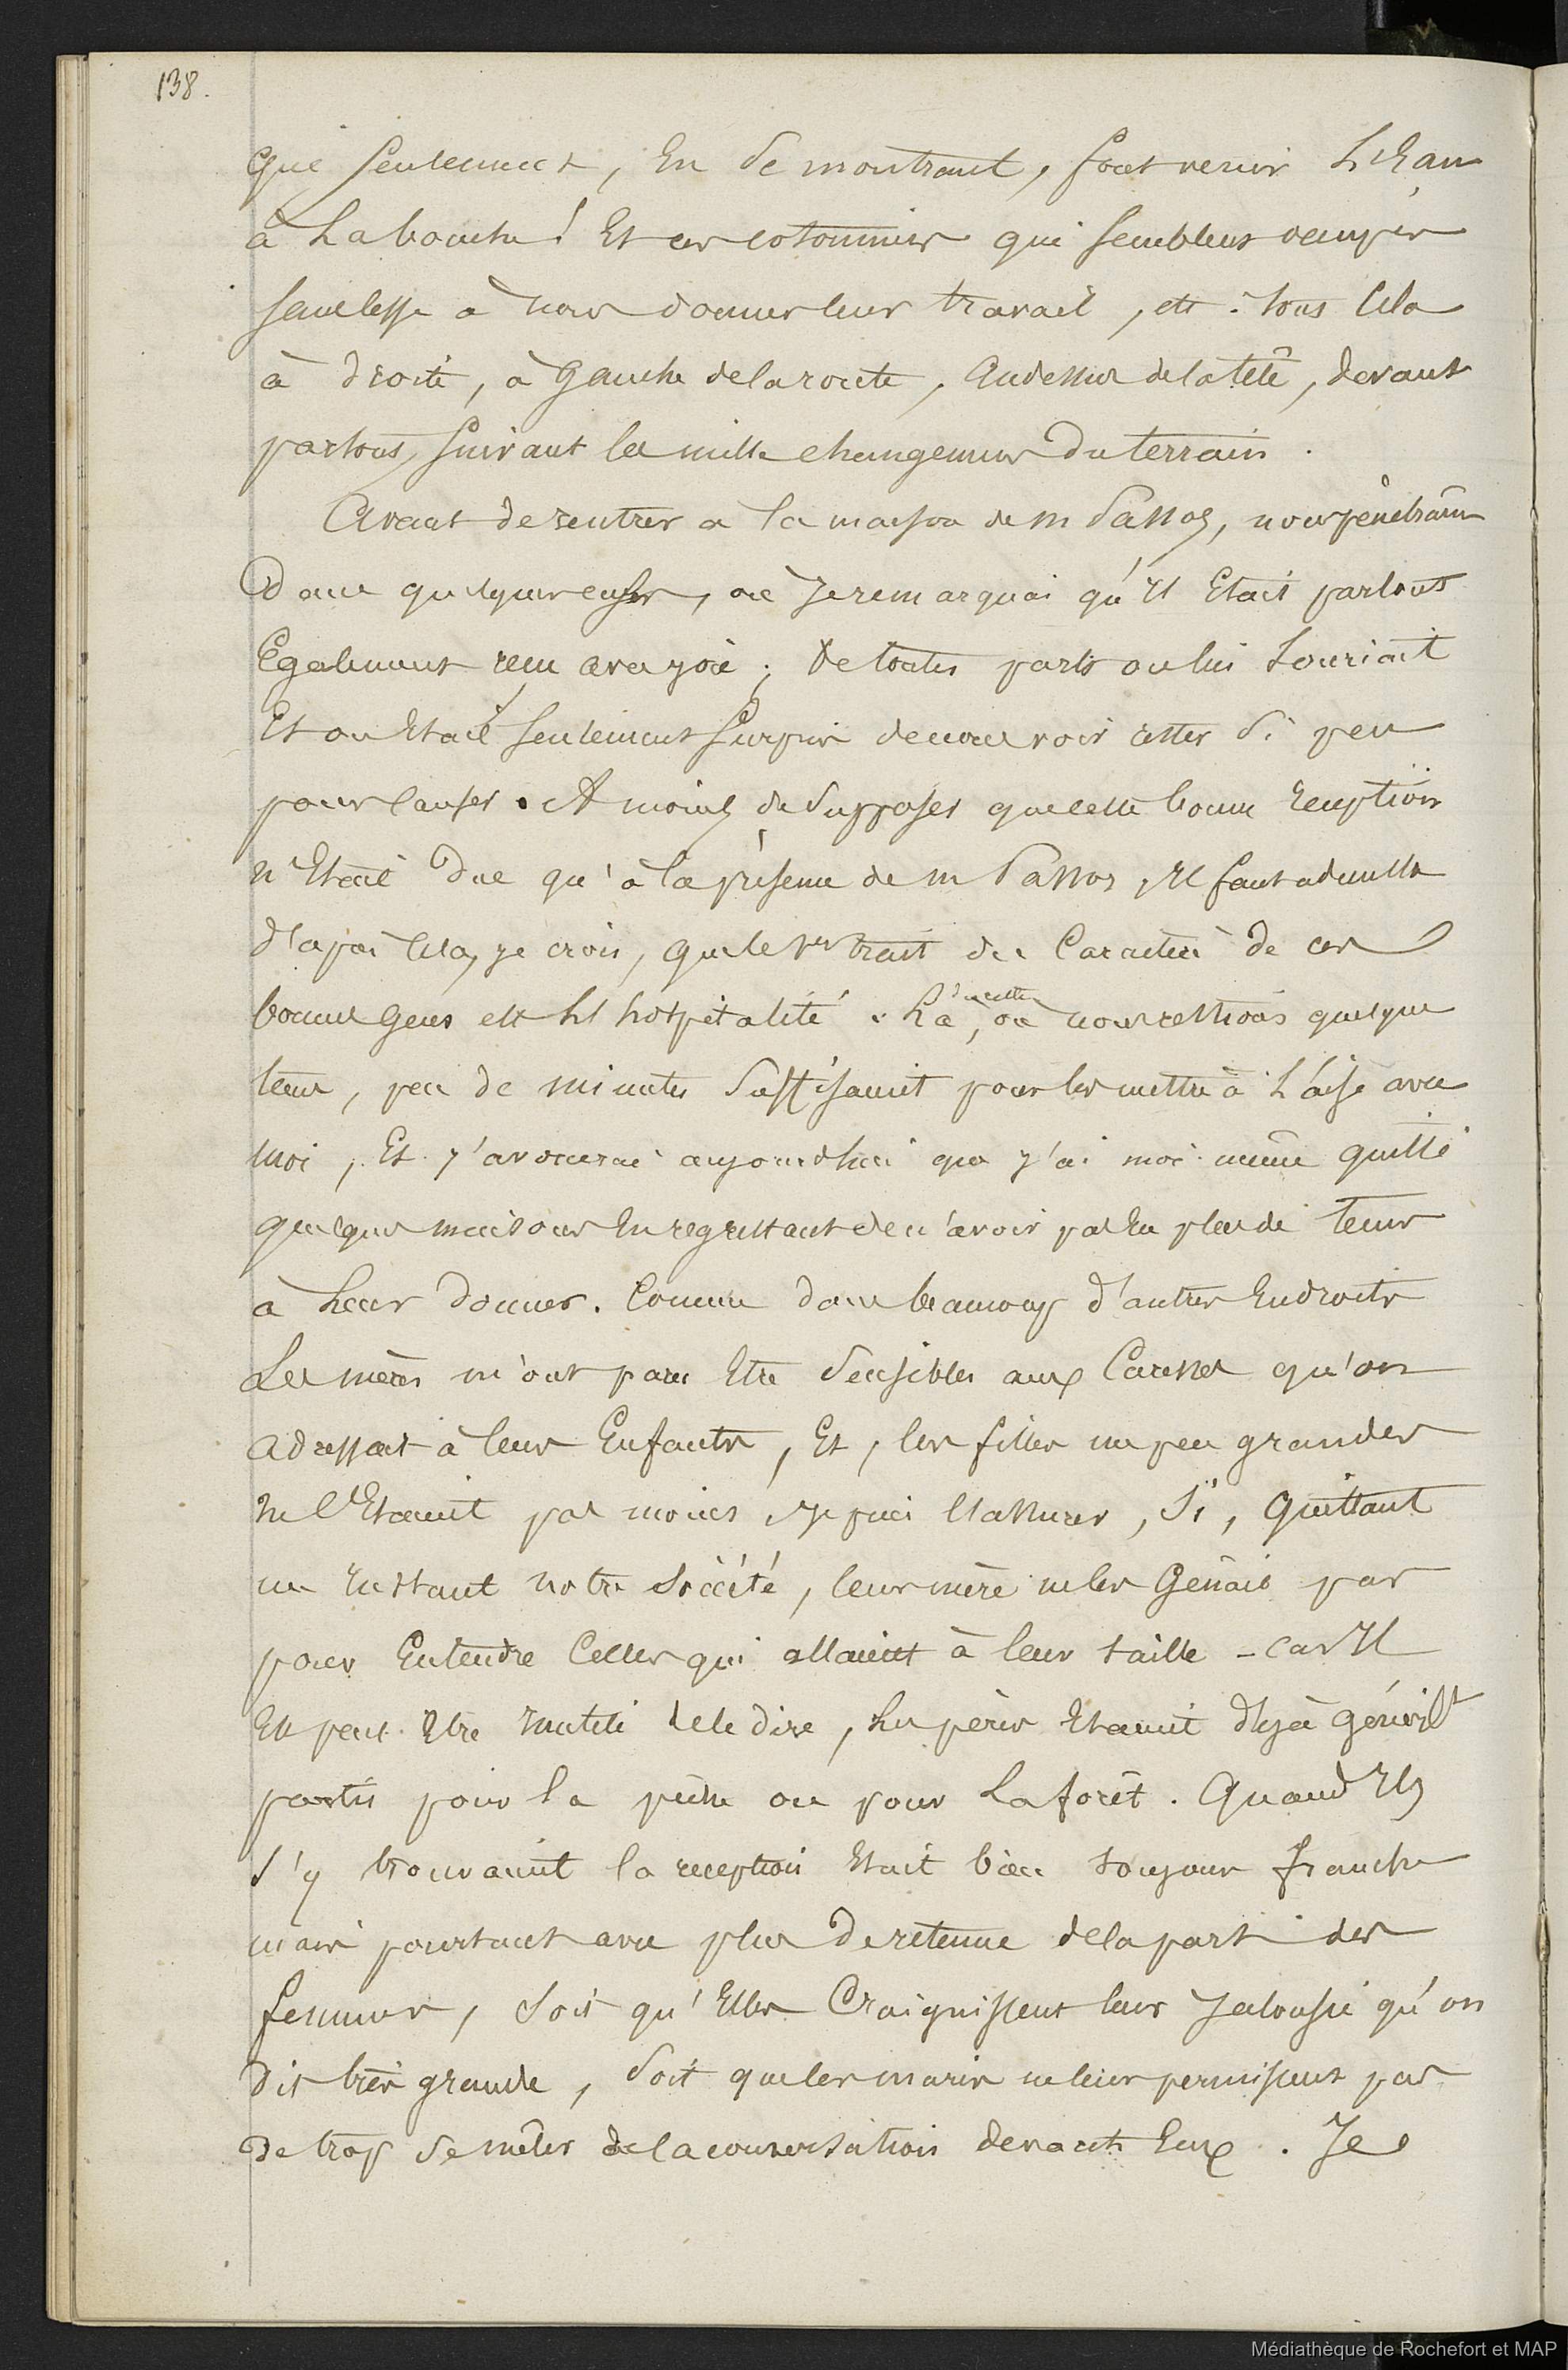 138.
que seulement, En se montrant, font venir L'Eau
à La bouche! Et ces cotonniers qui semblent occupés
sans cesse à nous donner leur travail, etc. tous Cela
à droite, à Gauche de la route, Audessus de la tête, devant
partout, suivant les mille changemens du terrain.
Avant de rentrer à la maison de m Passos, nous pénétrâmes
Dans quelques cases, où Je remarquai qu'Il Etait partout
Egalement reçu avec joie; De toutes parts on lui souriait
Et on Etait seulement surpris de nous voir rester si peu
pour causer. A moins de supposer que cette bonne réception
n'Etait Due qu'à la présence de m Passos, Il faut admettre
d'après Cela, je crois, que le 1er trait du Caractère de ces
bonnes Gens est L'hospitalité. Là, où nous restions quelque
tems, peu de minutes suffisaient pour les mettre à L'aise avec
moi, Et j'avouerai aujourdhui que j'ai moi-même quitté
quelques maisons En regrettant de n'avoir pas Eu plus de tems
à Leur Donner. Comme dans beaucoup d'autres Endroits
Les mères m'ont paru Etre sensibles aux Caresses qu'on
adressait à leurs Enfants, Et, les filles un peu grandes
ne l'Etaient pas moins, Je puis l'assurer, si, quittant
un Instant notre société, leur mère ne les Gênait pas
pour Entendre Celles qui allaient à leur taille - Car Il
Est peut-Etre Inutile de le dire, Les pères Etaient déjà génért
partis pour la pêche ou pour La forêt. Quand Ils
s'y trouvaient la reception Etait bien toujours franche
mais pourtant avec plus De retenue de la part des
femmes, soit qu'Elles Craignissent leur Jalousie qu'on
dit très grande, soit que les maris ne leur permissent pas
De trop se mêler de la conversation devant Eux. Je
Médiathèque de Rochefort et MAP